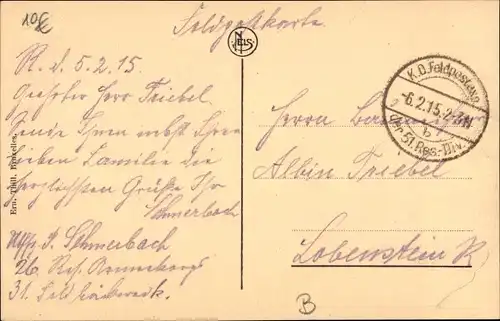 10€
Feldpostkarte
NELS
R. d. 5.2.15.
Geehrter Herr Triebel.
Sende Ihnen nebst Ihrer
lieben Familie die
herzlichsten Grüße Ihr
Schmerbach
Uffz. d. R. Schmerbach
26. Res.
31. Feld
Ern. Thill, Bruxelles
K.D. Feldpostexp.
-6.2.15.
b
der 51. Res.-Div.
Herrn
Albin Triebel
Lobenstein R.
B